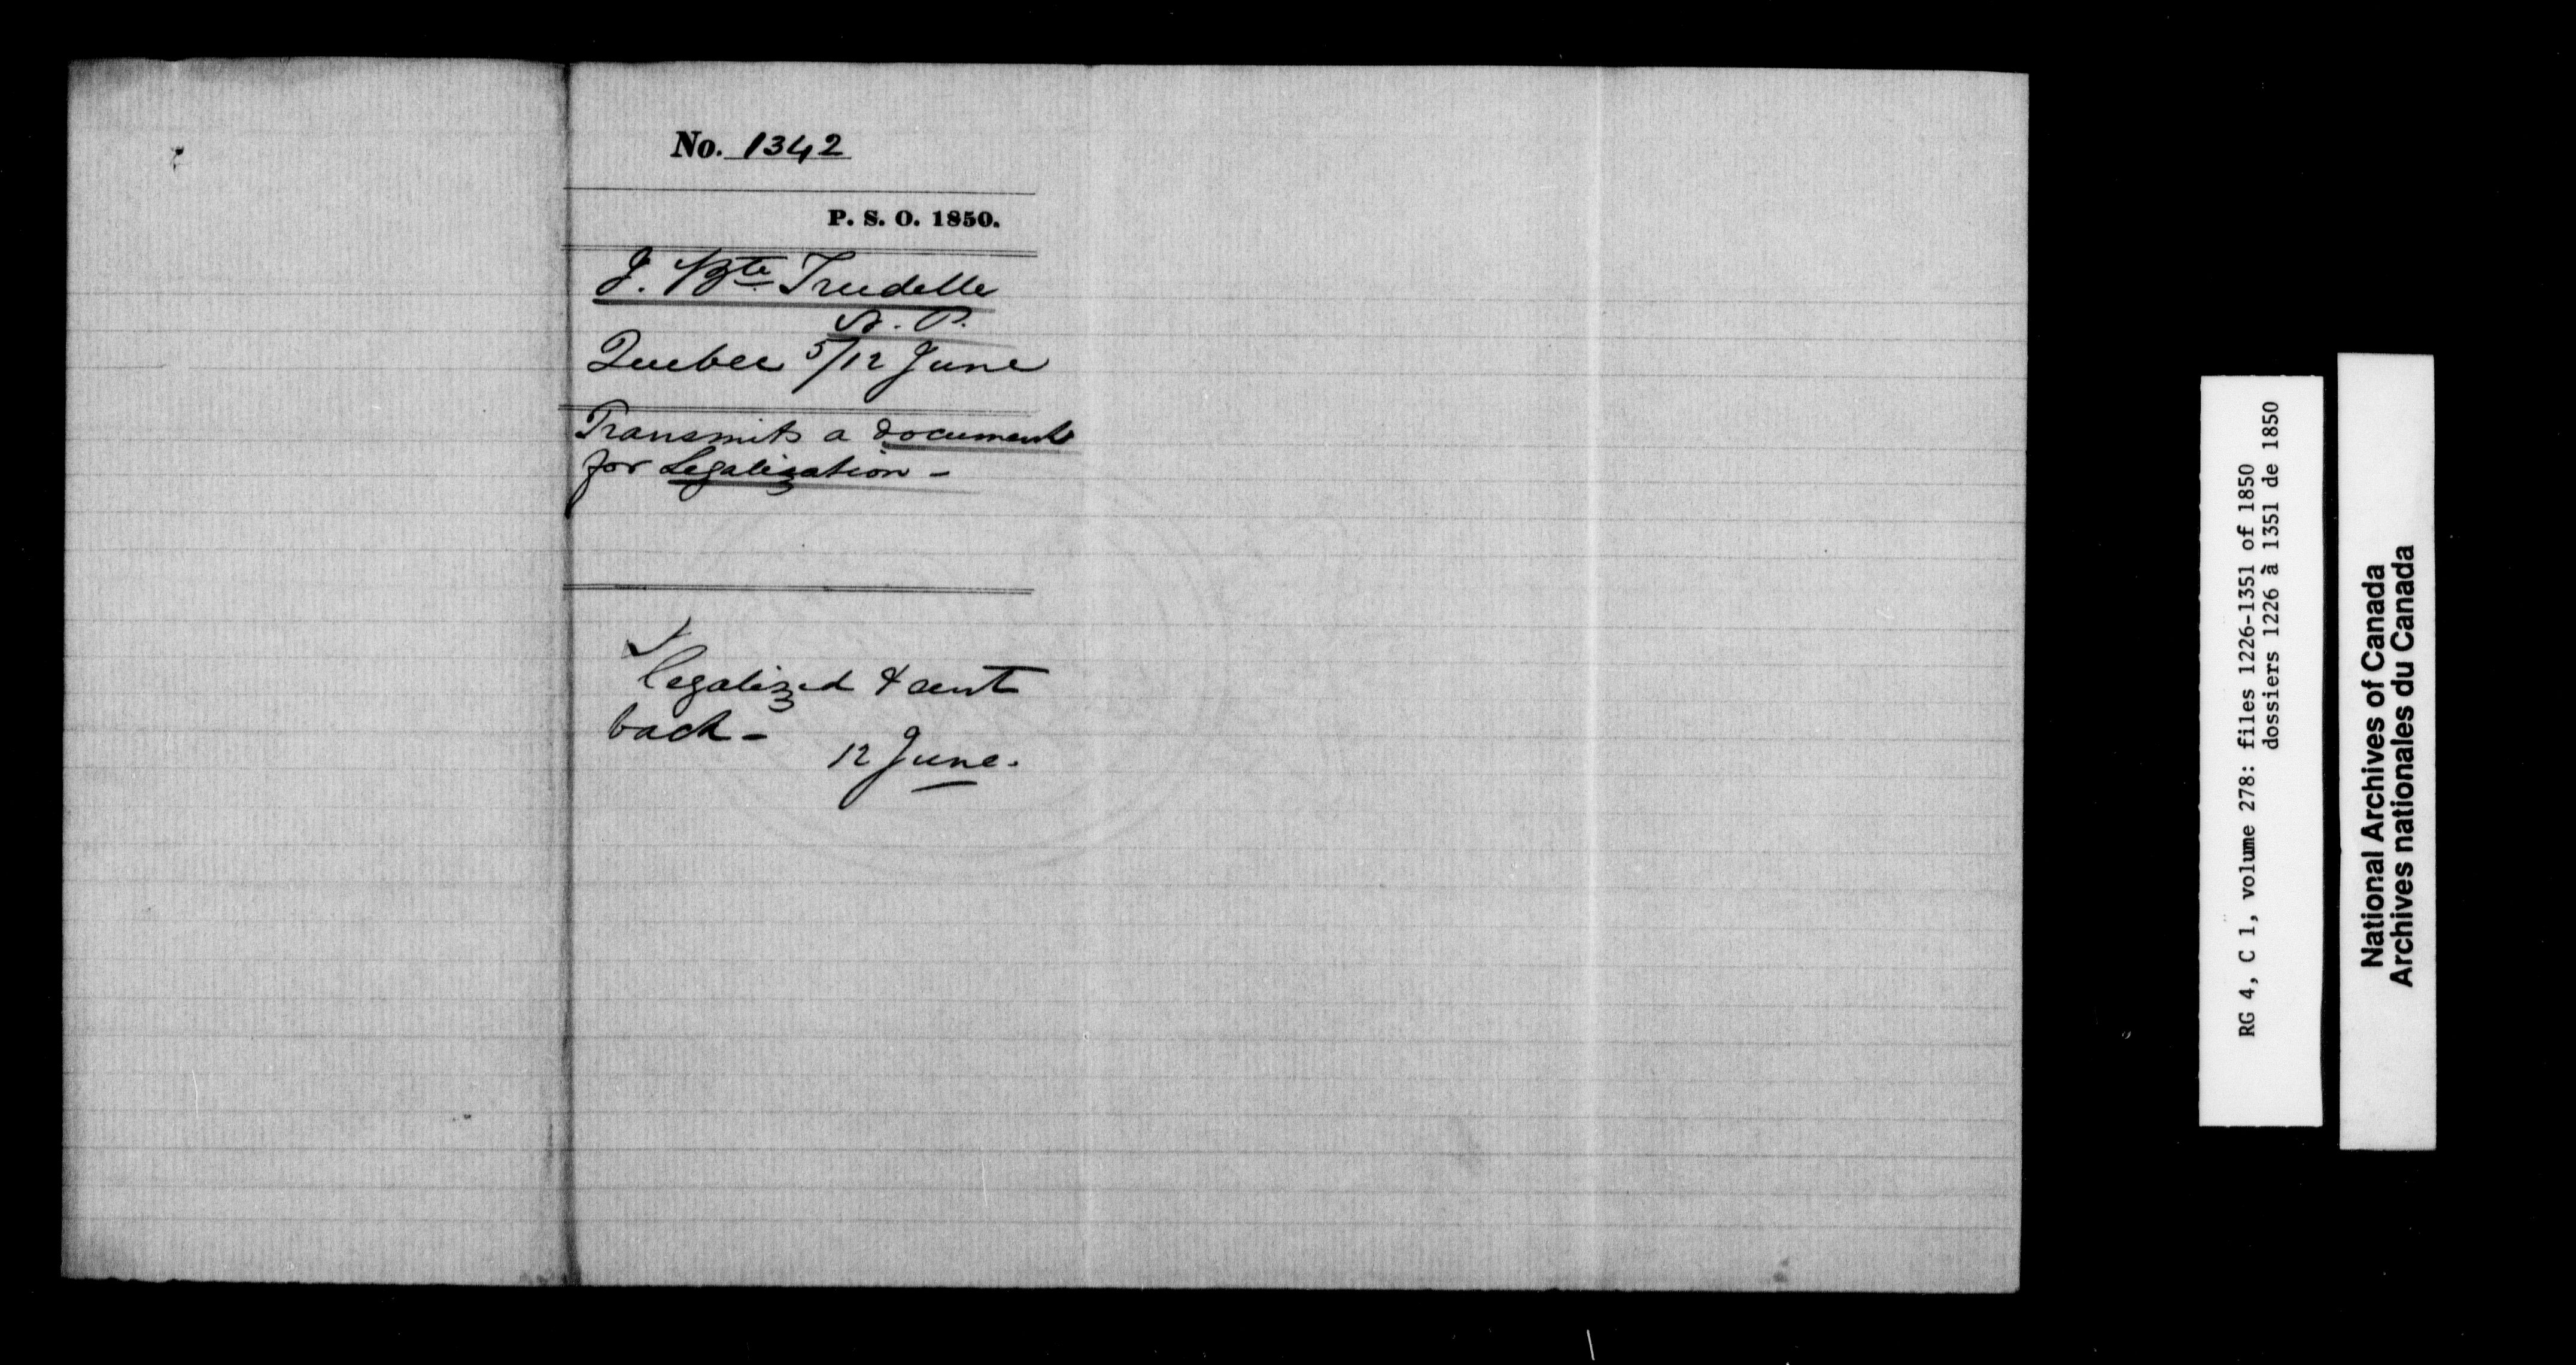 No. 1342
P. S. O. 1850.
J. Bte Trudelle
N. P.
Quebec 5/12 June
Transmits a document
for Legalization -
legalized & sent
back -
12 June.
RG 4, C 1, volume 278: files 1226-1351 of 1850
dossiers 1226 à 1351 de 1850
National Archives of Canada
Archives nationales du Canada